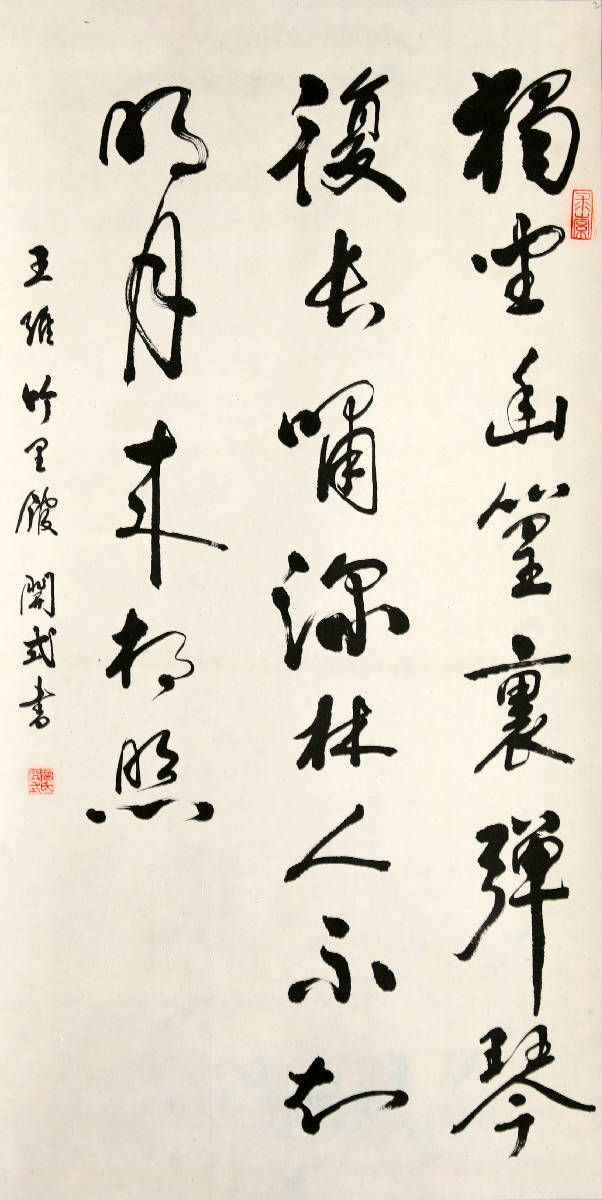 獨坐幽篁裏彈琴
復長嘯深林人不知
明月来相照
王維竹里館 式書